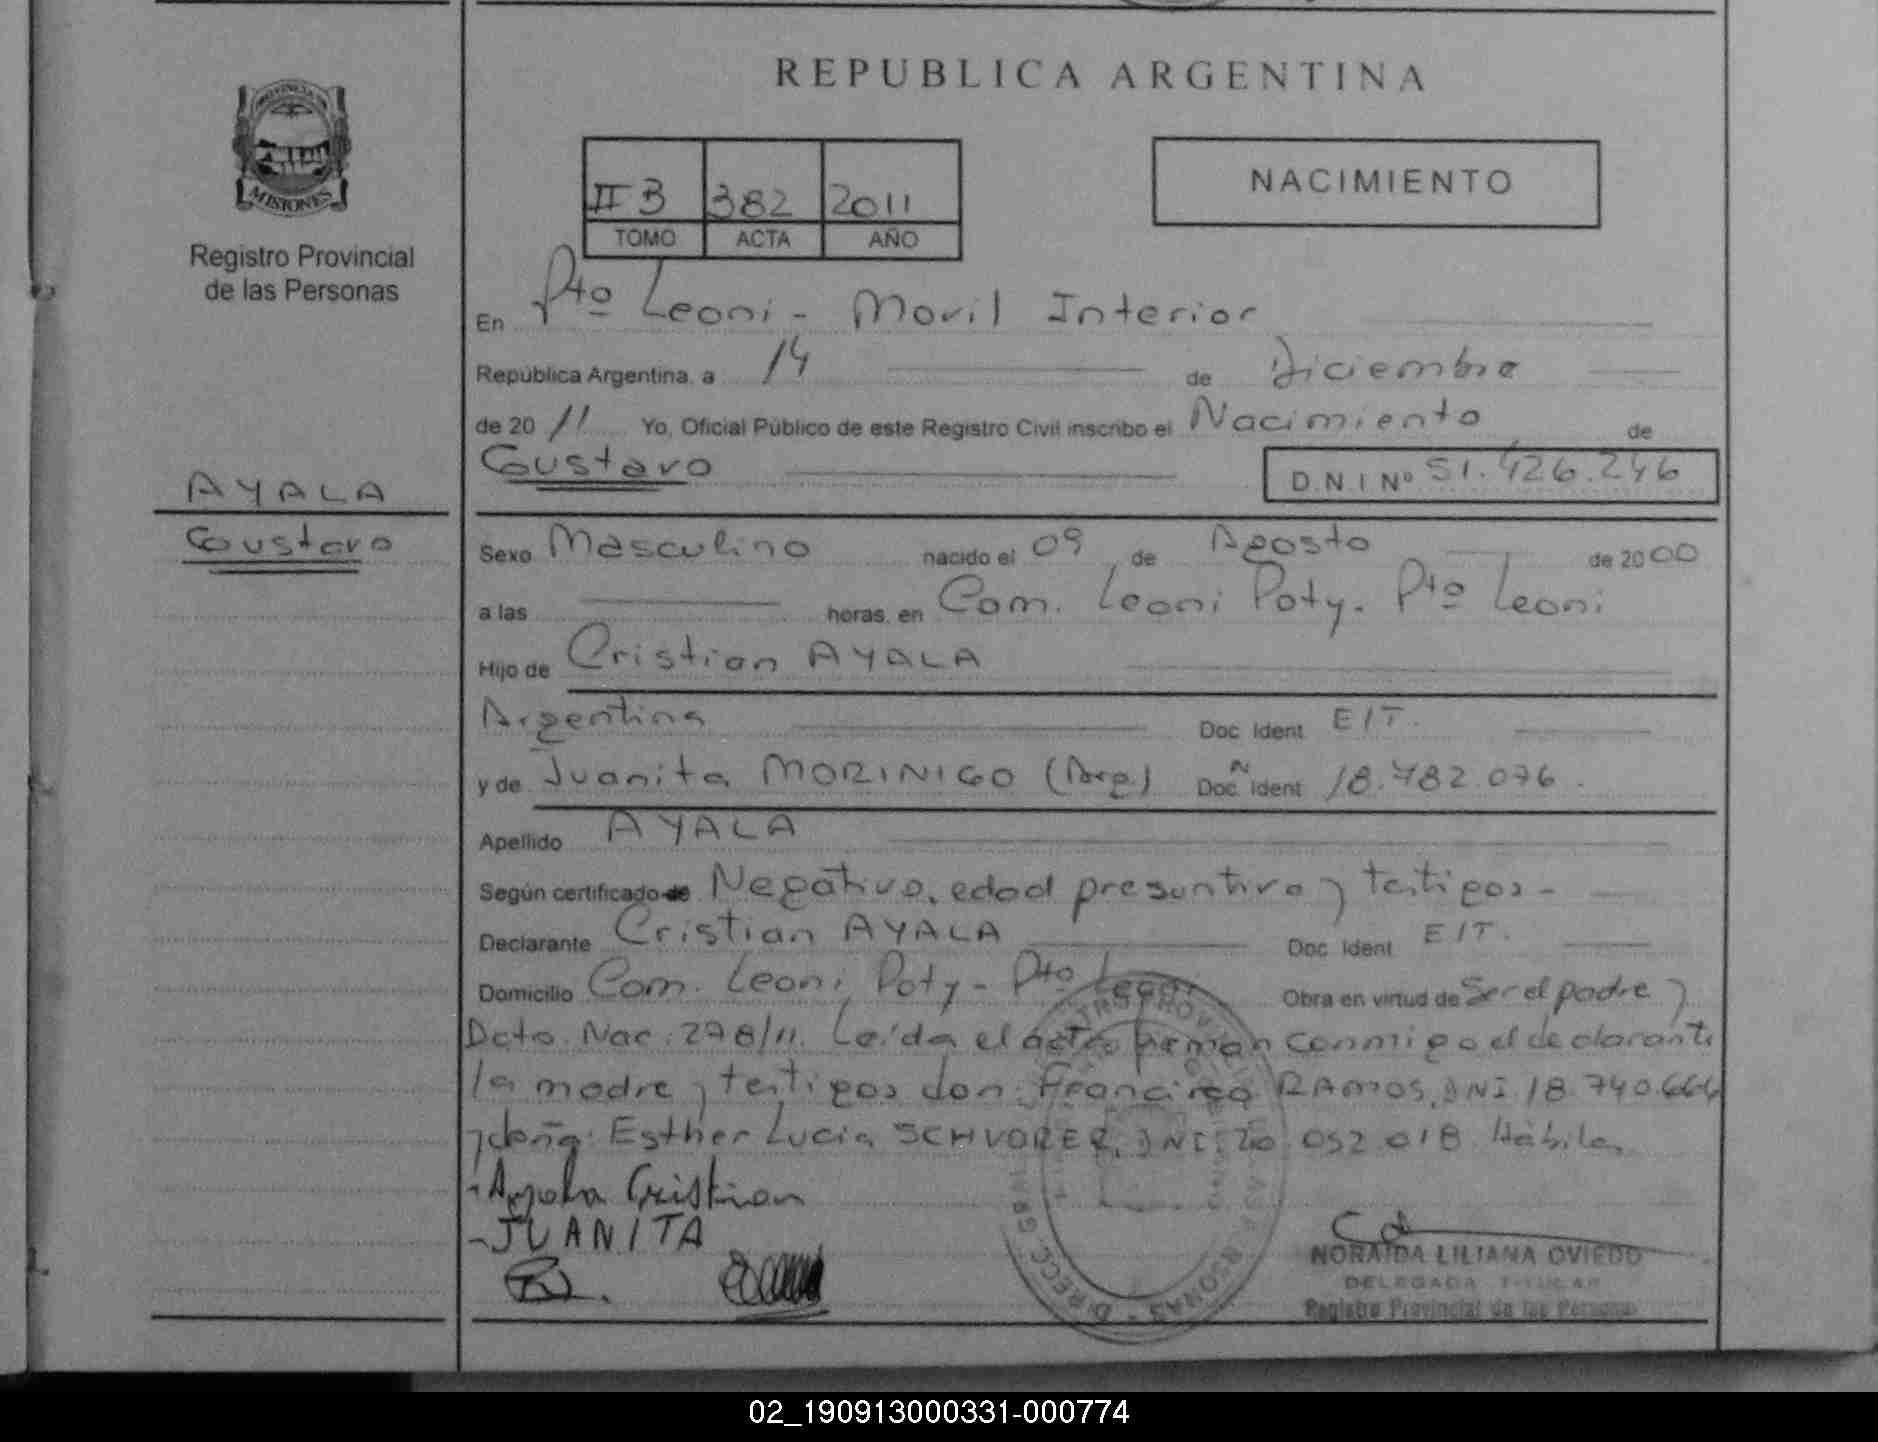 REPUBLICA ARGENTINA
MISIONES
Registro Provincial
de las Personas
II B 382 2011
TOMO ACTA AÑO
NACIMIENTO
En Pto Leoni - Movil Interior
República Argentina, a 14 de Diciembre
de 2011 Yo, Oficial Público de este Registro Civil inscribo el Nacimiento de
Gustavo D.N.I Nº 51.426.246
AYALA
Gustavo
Sexo Masculino nacido el 09 de Agosto de 2000
a las horas, en Com. Leoni Poty. Pto Leoni
Hijo de Cristian AYALA
Argentina Doc. Ident. EIT.
y de Juanita MORINIGO (Arg) Doc. N Ident. 18.782.076.
Apellido AYALA
Según certificado de Negativo, edad presuntiva y testigos -
Declarante Cristian AYALA Doc. Ident. EIT.
Domicilio Com. Leoni Poty - Pto Leoni Obra en virtud de Ser el padre y
Dcto. Nac. 278/11. Leída el acta firman conmigo el declarante
la madre y testigos don: Francisco RAMOS, DNI. 18.740.664
y doña: Esther Lucia SCHVORER, DNI: 20.052.018. Hábiles
- Ayala Cristian
- JUANITA
NORAIDA LILIANA OVIEDO
DELEGADA TITULAR
Registro Provincial de las Personas
02_190913000331-000774